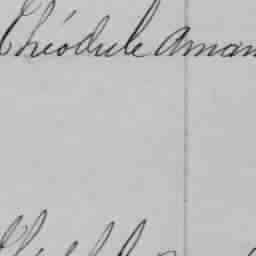 Théodule Aman